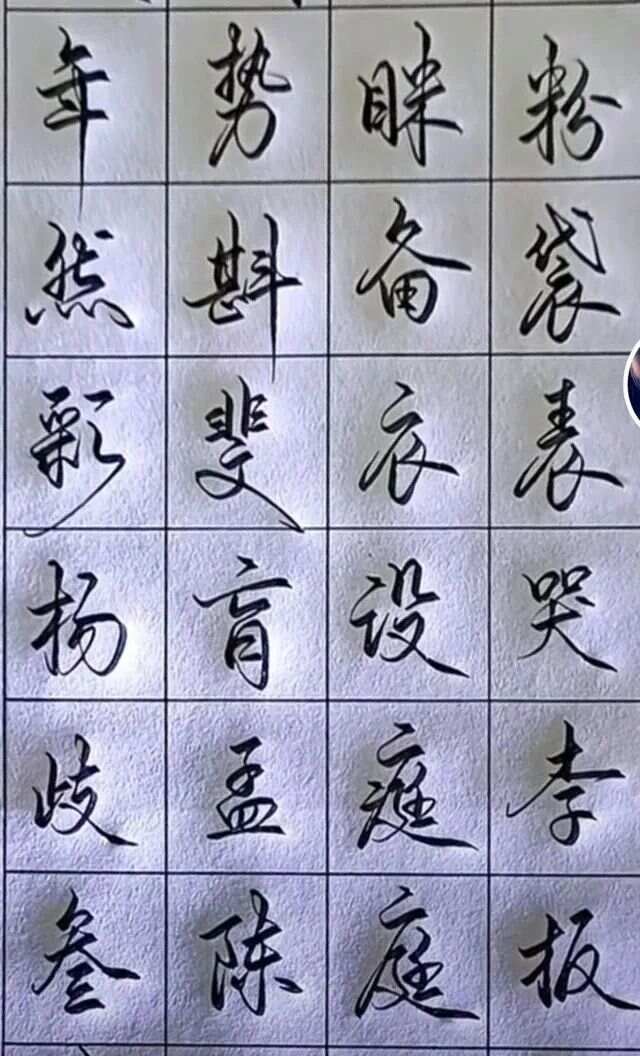 年势眯粉
然斟备袋
彩斐衣表
杨肓设哭
歧孟庭李
叁陈庭板